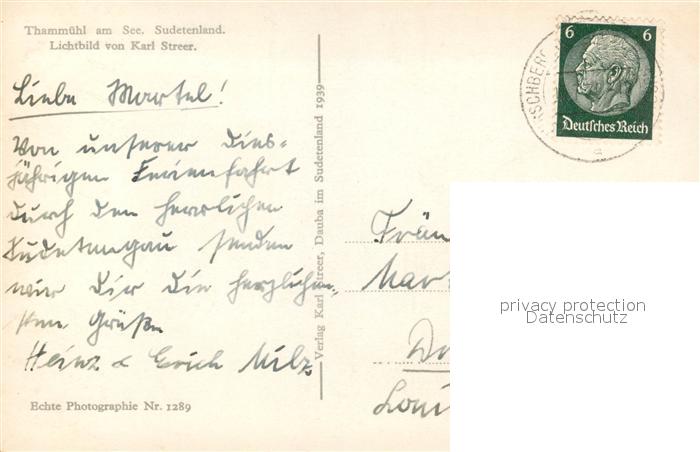 Thammühl am See. Sudetenland.
Lichtbild von Karl Streer.
Liebe Martel!
Von unserer dies-
jährigen Ferienfahrt
durch den herrlichen
Sudetengau senden
wir Dir die herzlich-
sten Grüße
Heinz & Erich Milz.
Echte Photographie Nr. 1289
Verlag Karl Streer, Dauba im Sudetenland 1939
6 6
Deutsches Reich
HIRSCHBERG
a
Fräu
Mar
privacy protection
Datenschutz